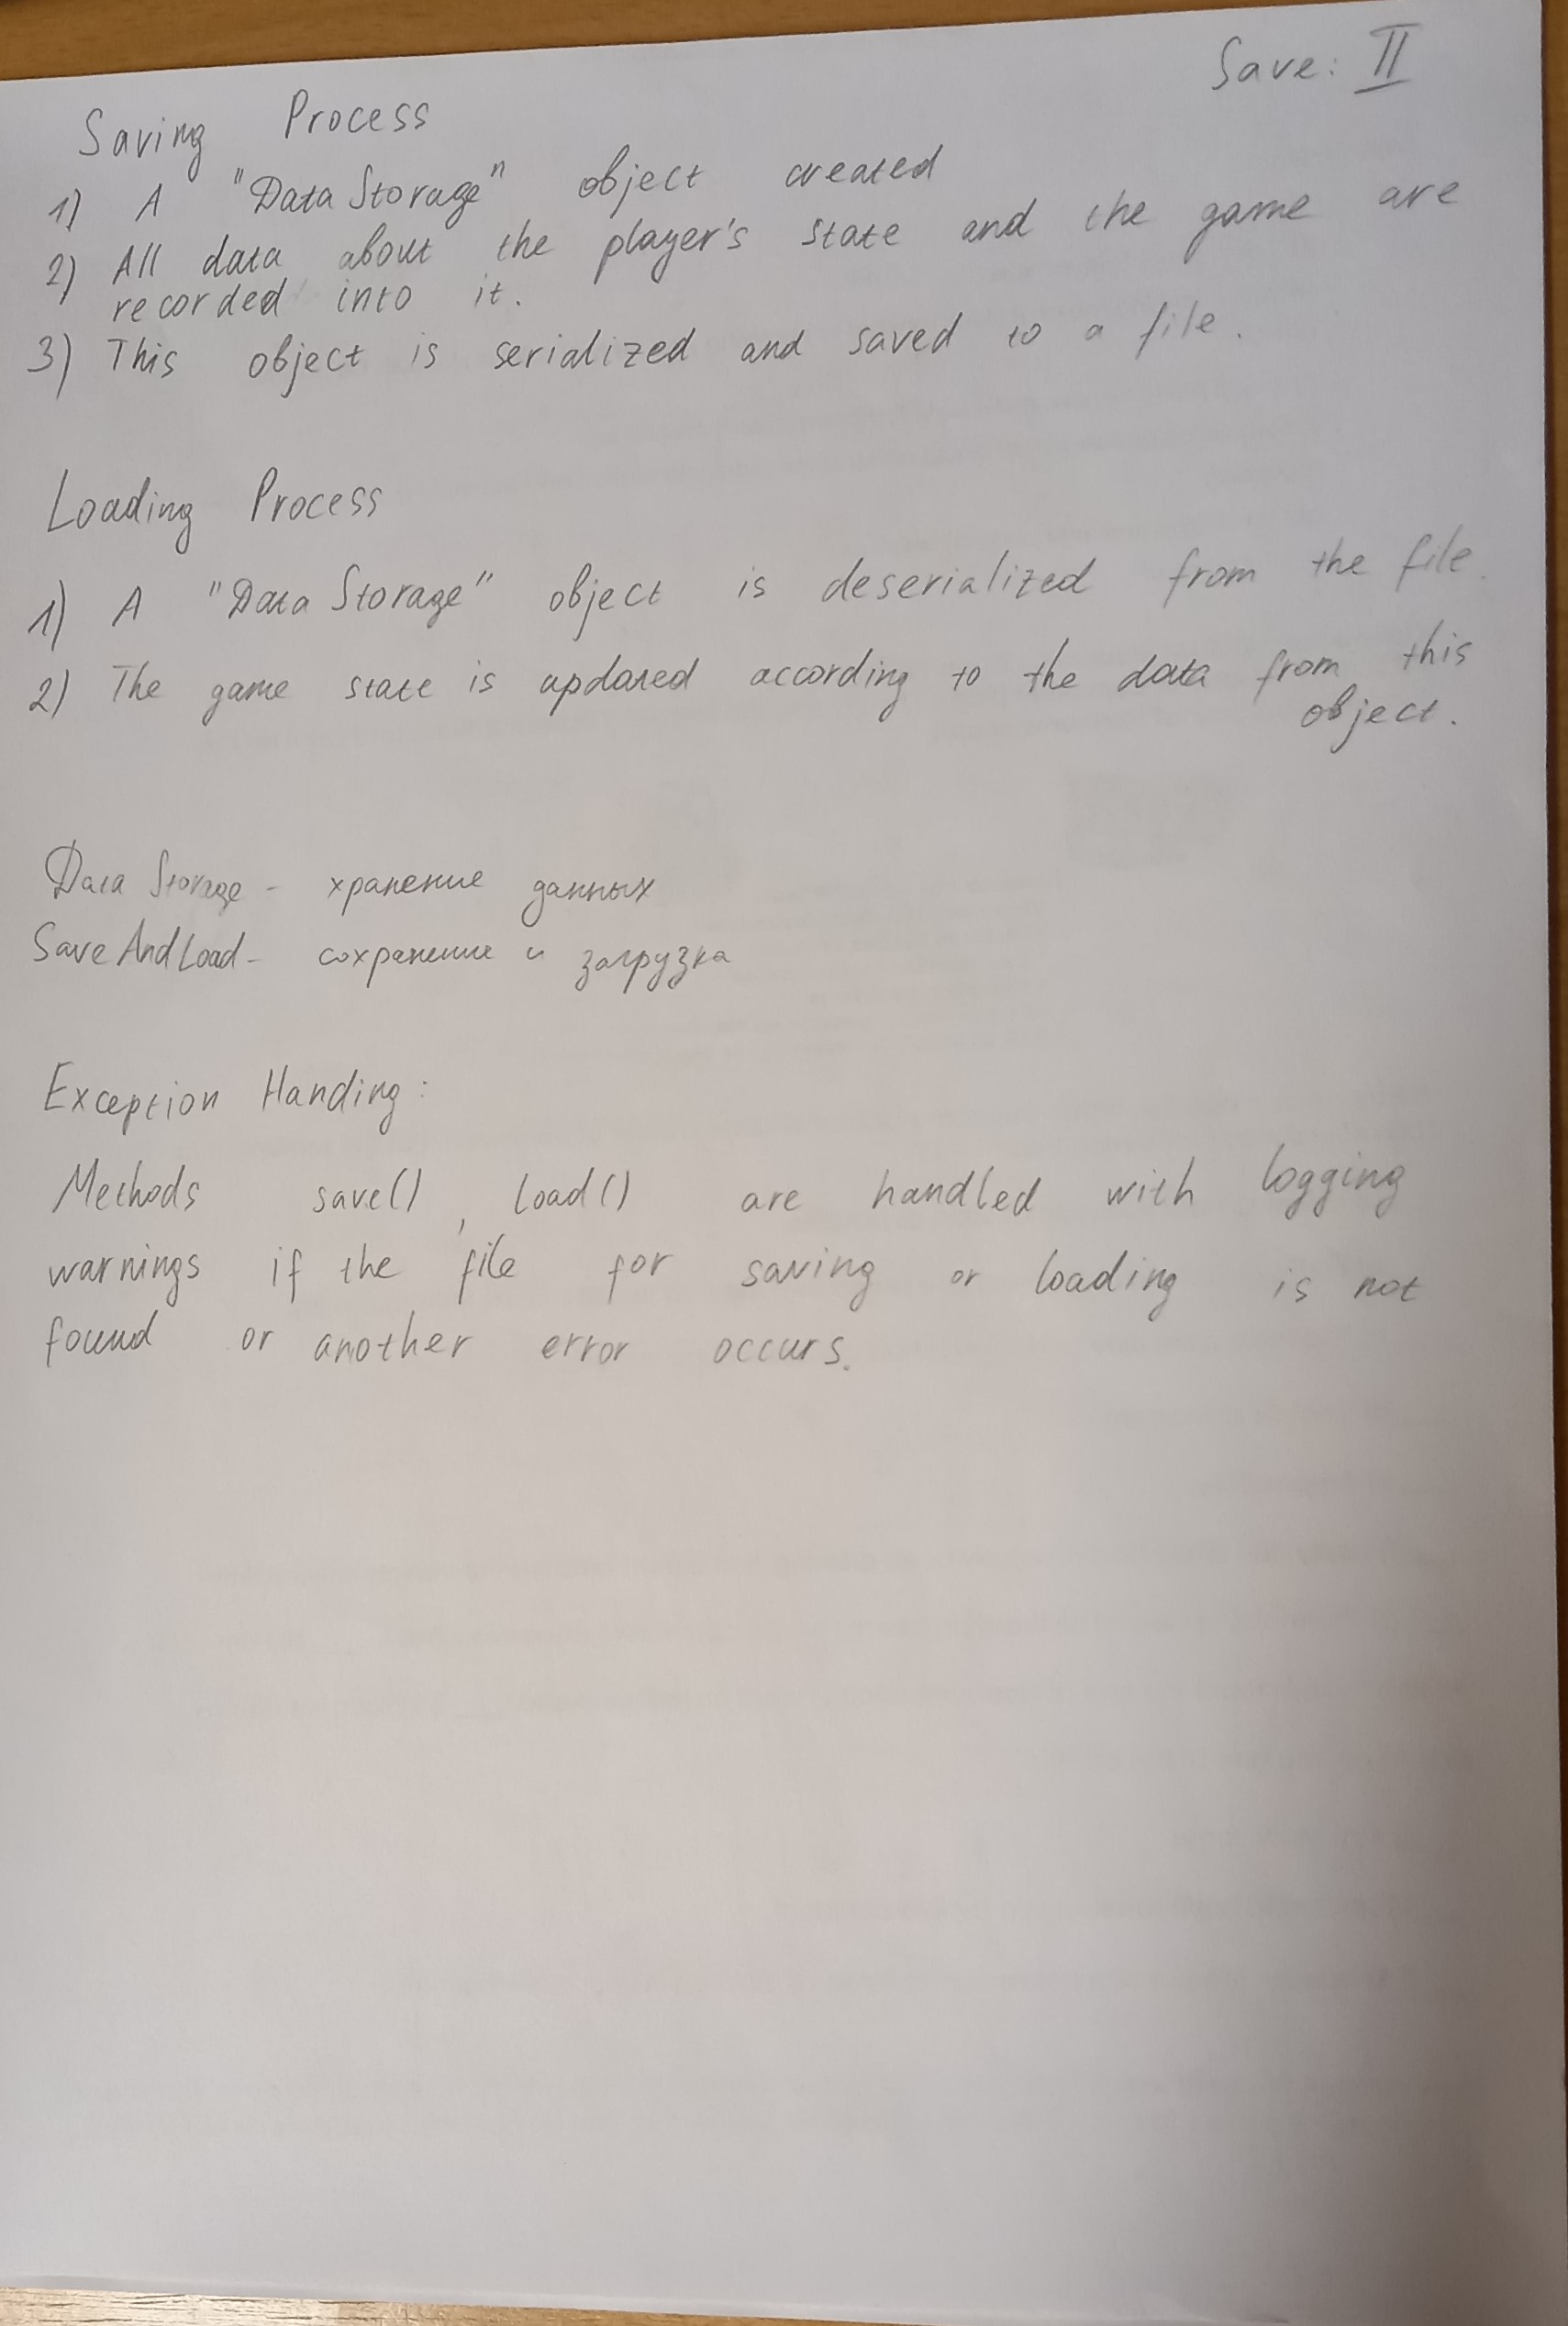 Save: II
Saving Process
1) A "Data Storage" object created
2) All data about the player's state and the game are
recorded into it.
3) This object is serialized and saved to a file.
Loading Process
1) A "Data Storage" object is deserialized from the file.
2) The game state is updated according to the data from this
object.
Data Storage - хранение данных
SaveAndLoad - сохранение и загрузка
Exception Handing:
Methods save(), load() are handled with logging
warnings if the file for saving or loading is not
found or another error occurs.